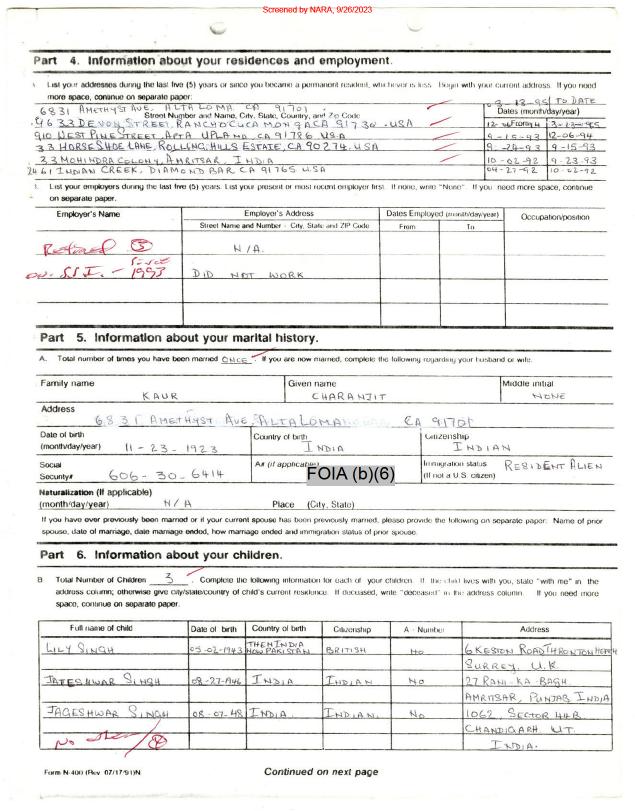 Screened by NARA, 9/26/2023
Part 4. Information about your residences and employment.
List your addresses during the last five (5) years or since you became a permanent resident, whichever is less. Begin with your current address. If you need
more space, continue on separate paper:
6831 AMETHYST AVE. ALTA LOMA CA 91701. 03-13-95 TO DATE
Street Number and Name, City, State, Country, and Zip Code Dates (month/day/year)
9633 DEVON STREET, RANCHO CUCAMONGA CA 91730. USA 12- 3-13-95
910 WEST PINE STREET, APTA UPLAND, CA 91786 USA 9-15-93 12-06-94
33 HORSE SHOE LANE, ROLLING HILLS ESTATE, CA 90274. USA 9-24-93 9-15-93
33 MOHINDRA COLONY, AMRITSAR, INDIA 10-02-92 9-23-93
2461 INDIAN CREEK, DIAMOND BAR CA 91765 USA 04-27-92 10-02-92
List your employers during the last five (5) years. List your present or most recent employer first. If none, write "None". If you need more space, continue
on separate paper.
Employer's Name Employer's Address Dates Employed (month/day/year) Occupation/position
Street Name and Number - City, State and ZIP Code From To
Retired 5 N/A.
Since
on S.S.I. - 1993 DID NOT WORK
Part 5. Information about your marital history.
A. Total number of times you have been married ONCE. If you are now married, complete the following regarding your husband or wife.
Family name Given name Middle initial
KAUR CHARANJIT NONE
Address
6831 AMETHYST AVE, ALTA LOMA CA 91701
Date of birth Country of birth Citizenship
(month/day/year) 11-23-1923 INDIA INDIAN
Social A# (if applicable) Immigration status RESIDENT ALIEN
Security# 606-30-6414 FOIA (b)(6) (If not a U.S. citizen)
Naturalization (If applicable)
(month/day/year) N/A Place (City, State)
If you have ever previously been married or if your current spouse has been previously married, please provide the following on separate paper: Name of prior
spouse, date of marriage, date marriage ended, how marriage ended and immigration status of prior spouse.
Part 6. Information about your children.
B Total Number of Children 3. Complete the following information for each of your children. If the child lives with you, state "with me" in the
address column; otherwise give city/state/country of child's current residence. If deceased, write "deceased" in the address column. If you need more
space, continue on separate paper.
Full name of child Date of birth Country of birth Citizenship A - Number Address
LILY SINGH 05-02-1943 THEN INDIA NOW PAKISTAN BRITISH NO 6 KESTON ROAD THRONTON HEATH
SURREY, U.K.
JATESHWAR SINGH 08-27-1946 INDIA INDIAN NO 27 RANI-KA-BAGH.
AMRITSAR, PUNJAB INDIA
JAGESHWAR SINGH 08-07-48 INDIA. INDIAN. NO 1062, SECTOR 44B,
CHANDIGARH UT.
No INDIA.
Form N-400 (Rev 07/17/91)N Continued on next page